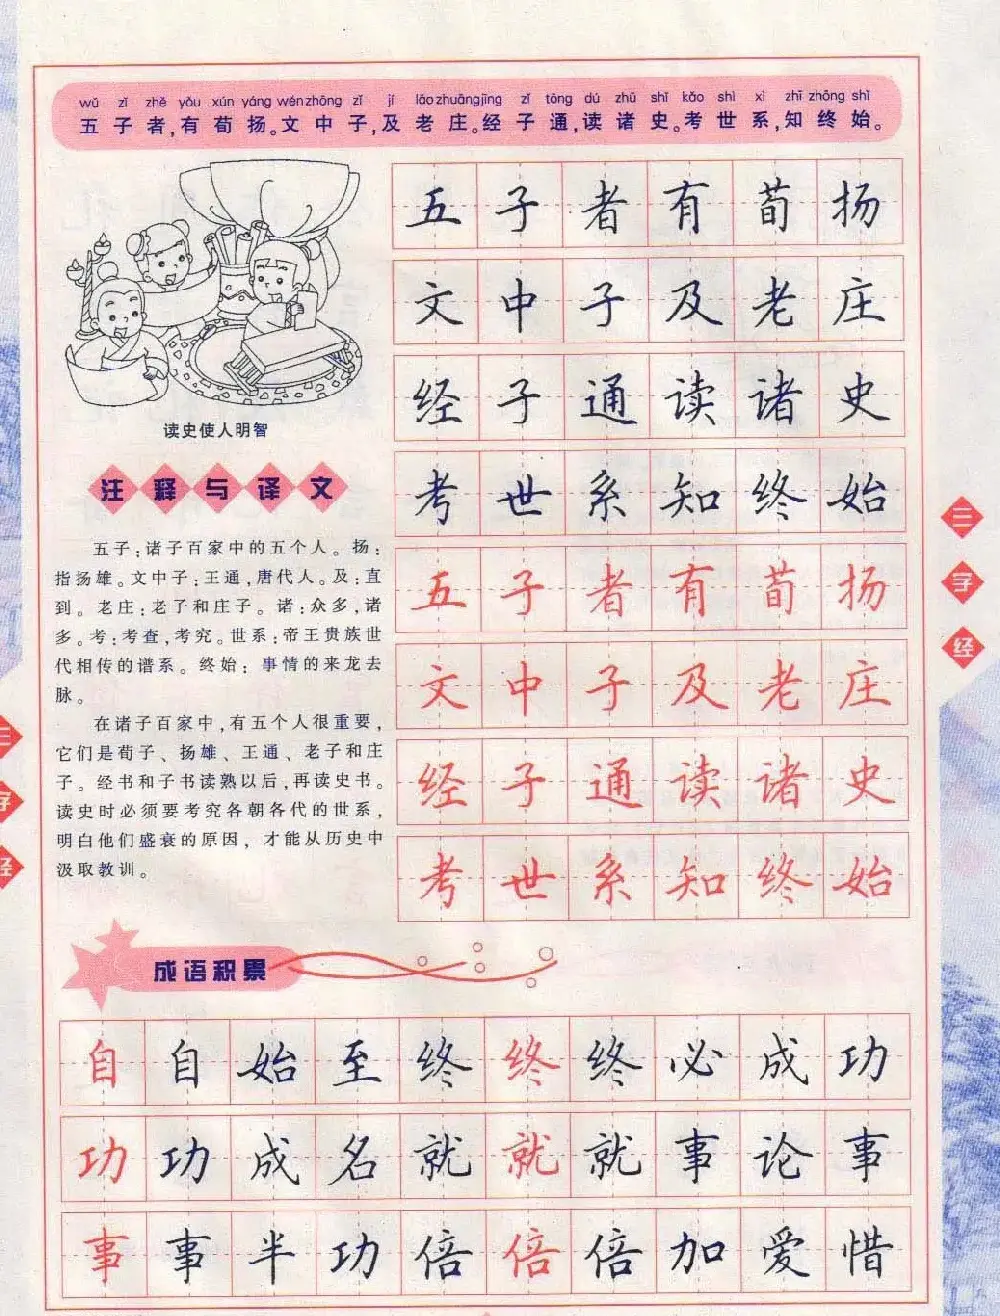 wǔ zǐ zhě yǒu xún yáng wén zhōng zǐ jí lǎo zhuāng jīng zǐ tōng dú zhū shǐ kǎo shì xì zhī zhōng shǐ
五子者,有荀扬。文中子,及老庄。经子通,读诸史。考世系,知终始。
五子者有荀扬
文中子及老庄
经子通读诸史
考世系知终始
五子者有荀扬
文中子及老庄
经子通读诸史
考世系知终始
读史使人明智
注释与译文
五子:诸子百家中的五个人。扬:
指扬雄。文中子:王通,唐代人。及:直
到。老庄:老了和庄子。诸:众多,诸
多。考:考查,考究。世系:帝王贵族世
代相传的谱系。终始:事情的来龙去
脉。
在诸子百家中,有五个人很重要,
它们是荀子、扬雄、王通、老子和庄
子。经书和子书读熟以后,再读史书。
读史时必须要考究各朝各代的世系,
明白他们盛衰的原因,才能从历史中
汲取教训。
成语积累
自自始至终终终必成功
功功成名就就就事论事
事事半功倍倍倍加爱惜
三字经
三字经